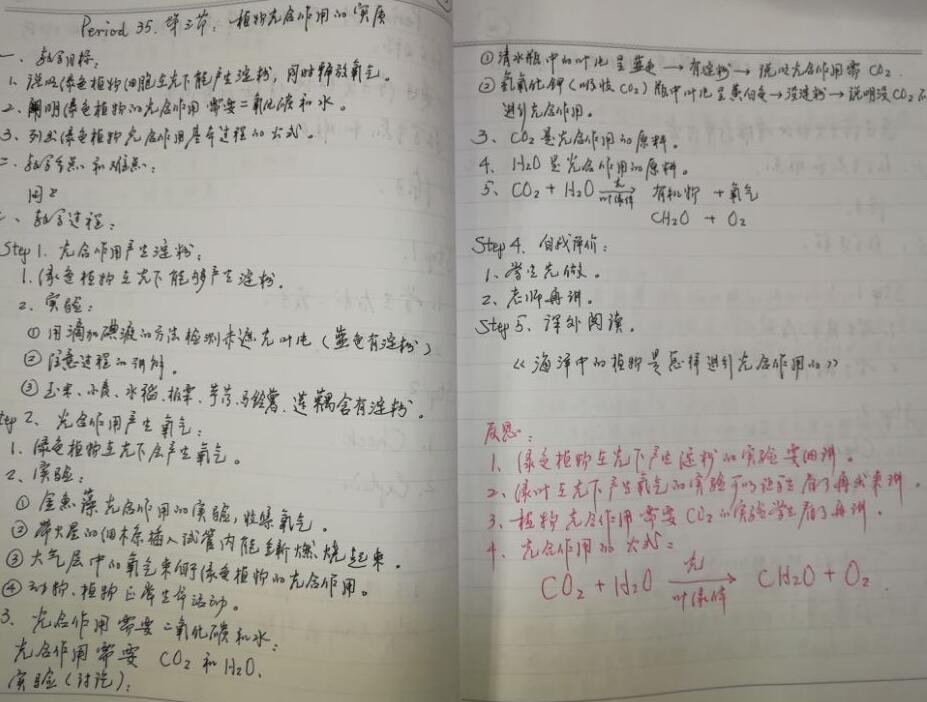 Period 35. 第三节: 植物光合作用的实质
一、教学目标:
1. 说明绿色植物细胞在光下能产生淀粉,同时释放氧气。
2. 阐明绿色植物的光合作用需要二氧化碳和水。
3. 列出绿色植物光合作用基本过程的公式。
二、教学重点和难点:
同上
三、教学过程:
Step 1. 光合作用产生淀粉:
1. 绿色植物在光下能够产生淀粉.
2. 实验:
① 用滴加碘液的方法检测未遮光叶片(蓝色有淀粉)
② 注意过程的讲解.
③ 玉米、小麦、水稻、板栗、芋艿、马铃薯、莲藕含有淀粉。
Step 2. 光合作用产生氧气:
1. 绿色植物在光下会产生氧气。
2. 实验:
① 金鱼藻光合作用的实验,收集氧气。
② 带火星的细木条插入试管内能重新燃烧起来.
③ 大气层中的氧气来自于绿色植物的光合作用。
④ 动物、植物正常生命活动。
3. 光合作用需要二氧化碳和水:
光合作用需要 CO₂ 和 H₂O.
实验(讨论):
① 清水瓶中的叶片呈蓝色→有淀粉→说明光合作用需CO₂.
② 氢氧化钾(吸收CO₂)瓶中叶片呈黄白色→没淀粉→说明没CO₂不
进行光合作用。
3. CO₂是光合作用的原料。
4. H₂O是光合作用的原料。
5. CO₂ + H₂O 光 叶绿体 → 有机物 + 氧气
CH₂O + O₂
Step 4. 自我评价:
1、学生先做。
2、老师再讲。
Step 5、课外阅读。
《海洋中的植物是怎样进行光合作用的》
反思:
1、绿色植物在光下产生淀粉的实验要细讲。
2、绿叶在光下产生氧气的实验可以让学生看了再我来讲.
3、植物光合作用需要CO₂的实验学生看了再讲.
4、光合作用的公式:
CO₂ + H₂O 光 叶绿体 → CH₂O + O₂